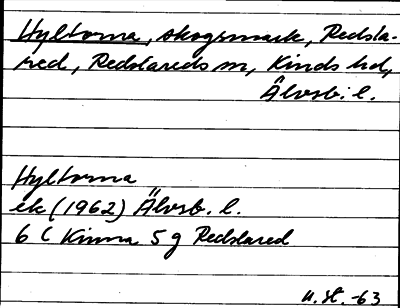 Hyltorna, skogsmark, Redsla-
red, Redslareds sn, Kinds hd,
Älvsb. l.
Hyltorna
ek (1962) Älvsb. l.
6 C Kinna 5 g Redslared
-63